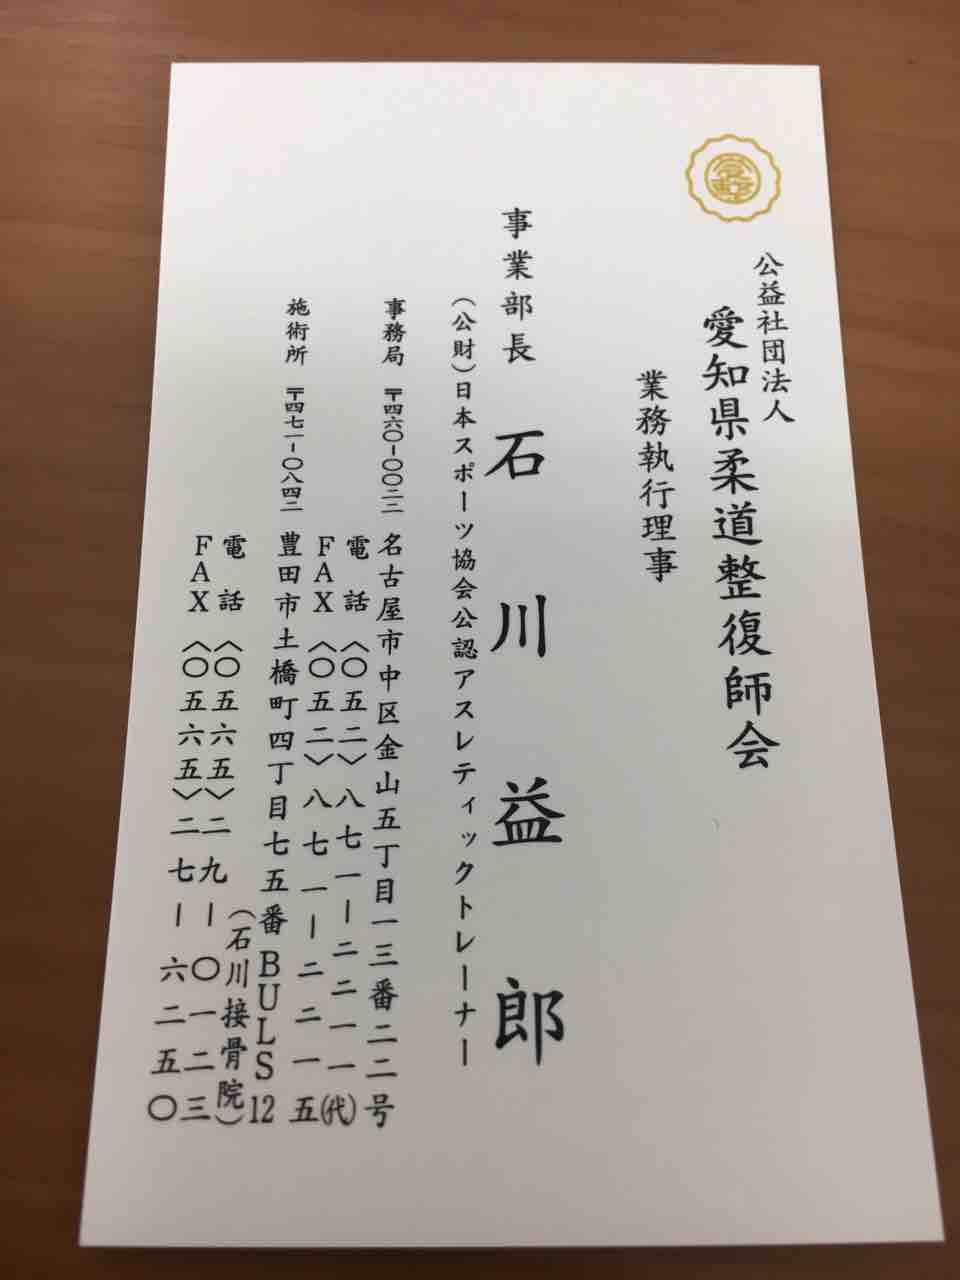 公益社団法人
愛知県柔道整復師会
業務執行理事
事業部長 石川益郎
(公財)日本スポーツ協会公認アスレティックトレーナー
事務局 〒四六〇-〇〇二二 名古屋市中区金山五丁目一三番二二号
電話〈〇五二〉八七一-二二一一(代)
FAX〈〇五二〉八七一-二二一五
施術所 〒四七一-〇八四二 豊田市土橋町四丁目七五番BULS12
(石川接骨院)
電話〈〇五六五〉二九-〇一二三
FAX〈〇五六五〉二七-六二五〇